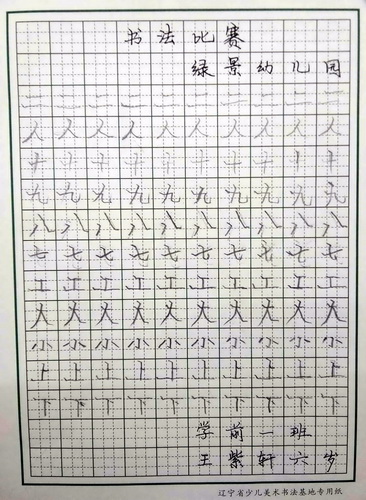 书法比赛
绿景幼儿园
二二二二二二二二二二
人人人人人人人人人人
十十十十十十十十十十
九九九九九九九九九九
八八八八八八八八八八
七七七七七七七七七七
工工工工工工工工工工
大大大大大大大大大大
小小小小小小小小小小
上上上上上上上上上上
下下下下下下下下下下
学前一班
王紫轩六岁
辽宁省少儿美术书法基地专用纸